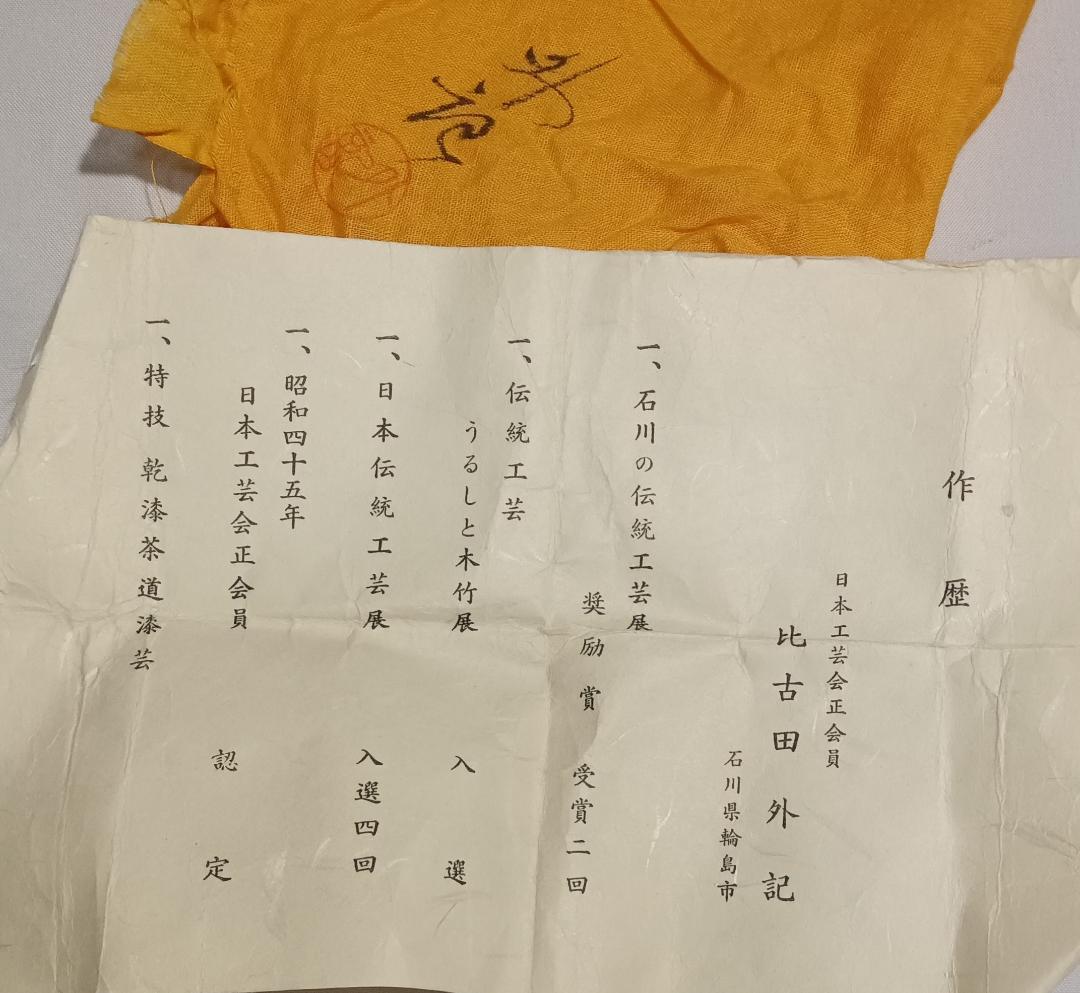 作歴
日本工芸会正会員
比古田外記
石川県輪島市
一、石川の伝統工芸展
奨励賞 受賞二回
一、伝統工芸
うるしと木竹展 入選
一、日本伝統工芸展 入選四回
一、昭和四十五年
日本工芸会正会員 認定
一、特技 乾漆茶道漆芸